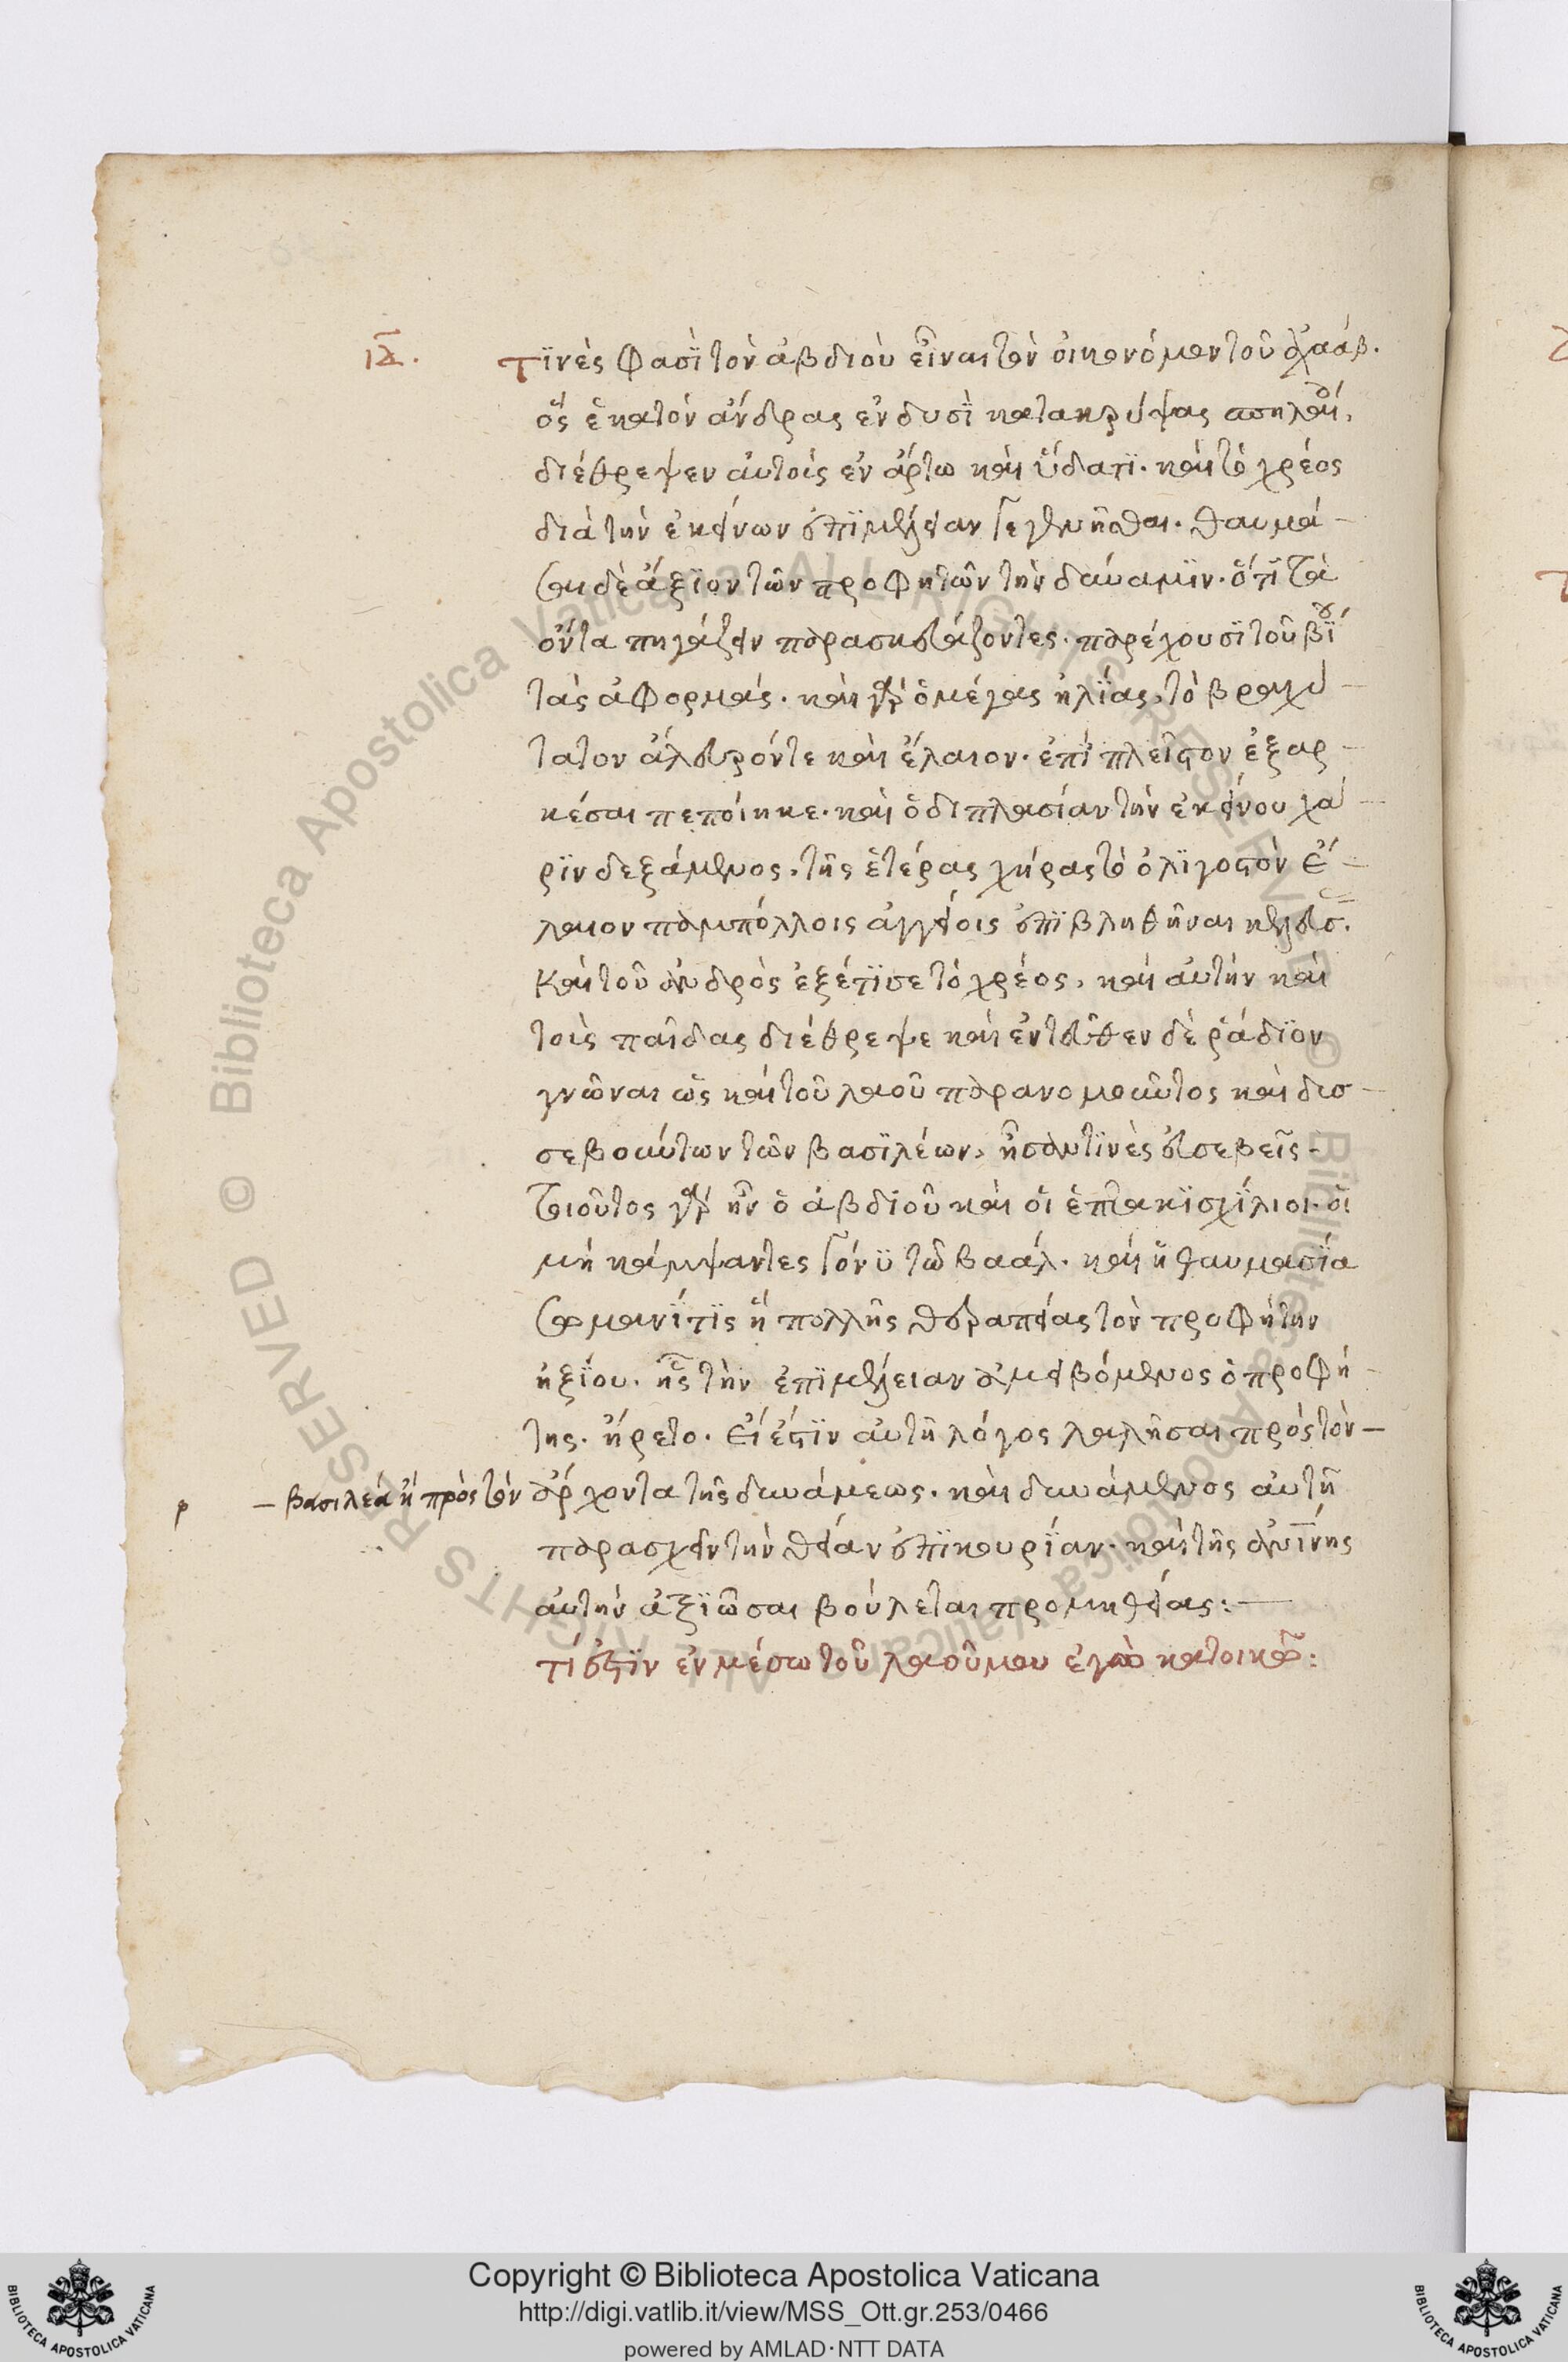 ιδ.
Τϊνὲς φασῒ τὸν ἀβδιοὺ εἶναι τὸν οἰκονόμον τοῦ ἀχαάβ.
ὃς ἑκατὸν ἄνδρας ἐν δυσῒ κατακρύψας σπηλαί,
διέθρεψεν αὐτοὺς ἐν ἄρτω καὶ ὕδατϊ. καὶ τὸ χρέος
διὰ τὴν ἐκείνων ἐπϊμέλειαν γεγενῆσθαι. θαυμά-
σαι δὲ ἄξϊον τῶν προφητῶν τὴν δύναμϊν. ὅτϊ τὰ
ὄντα πηγάζειν παρασκευάζοντες. παρέχουσϊ τοῦ βΐου
τὰς ἀφορμάς. καὶ γὰρ ὁ μέγας ἠλΐας, τὸ βραχύ-
τατον ἄλευρόν τε καὶ ἔλαιον. ἐπὶ πλεῖστον ἐξαρ-
κέσαι πεποίηκε. καὶ ὁ διπλασίαν τὴν ἐκείνου χά-
ρϊν δεξάμενος, τῆς ἑτέρας χήρας τὸ ὀλϊγοστὸν ἔ-
λαιον παμπόλλοις ἀγγείοις ἐπϊβληθῆναι κελεύσ.
Καὶ τοῦ ἀνδρὸς ἐξέτϊσε τὸ χρέος, καὶ αὐτὴν καὶ
τοὺς παῖδας διέθρεψε καὶ ἐντεῦθεν δὲ ῥάδϊον
γνῶναι ὡς καὶ τοῦ λαοῦ παρανομοῦντος καὶ δυσ-
σεβούντων τῶν βασϊλέων, ἦσαν τϊνὲς εὐσεβεῖς.
Τοιοῦτος γὰρ ἦν ὁ ἀβδϊοῦ καὶ οἱ ἑπτακϊσχΐλιοι. οἱ
μὴ κάμψαντες γόνϋ τῶ βαάλ. καὶ ἡ θαυμασΐα
σωμανΐτϊς ἣ πολλῆς θεραπείας τὸν προφήτην
ἠξΐου. ἧς τὴν ἐπϊμέλειαν ἀμειβόμενος ὁ προφή-
της. ἤρετο. εἰ ἔστϊν αὐτῆ λόγος λαλῆσαι πρὸς τὸν-
ρ -βασιλέα ἢ πρὸς τὸν ἄρχοντα τῆς δυνάμεως. καὶ δυνάμενος αὐτῆ
παρασχεῖν τὴν θείαν ἐπϊκουρΐαν. καὶ τῆς ἀνΐνης
αὐτὴν ἀξϊῶσαι βούλεται προμηθείας:-
τί ἐστϊν ἐν μέσω τοῦ λαοῦ μου ἐγὼ κατοικῶ:
Copyright © Biblioteca Apostolica Vaticana
http://digi.vatlib.it/view/MSS_Ott.gr.253/0466
powered by AMLAD·NTT DATA
BIBLIOTECA APOSTOLICA VATICANA
BIBLIOTECA APOSTOLICA VATICANA
© Biblioteca Apostolica Vaticana ALL RIGHTS RESERVED
© Biblioteca Apostolica Vaticana ALL RIGHTS RESERVED